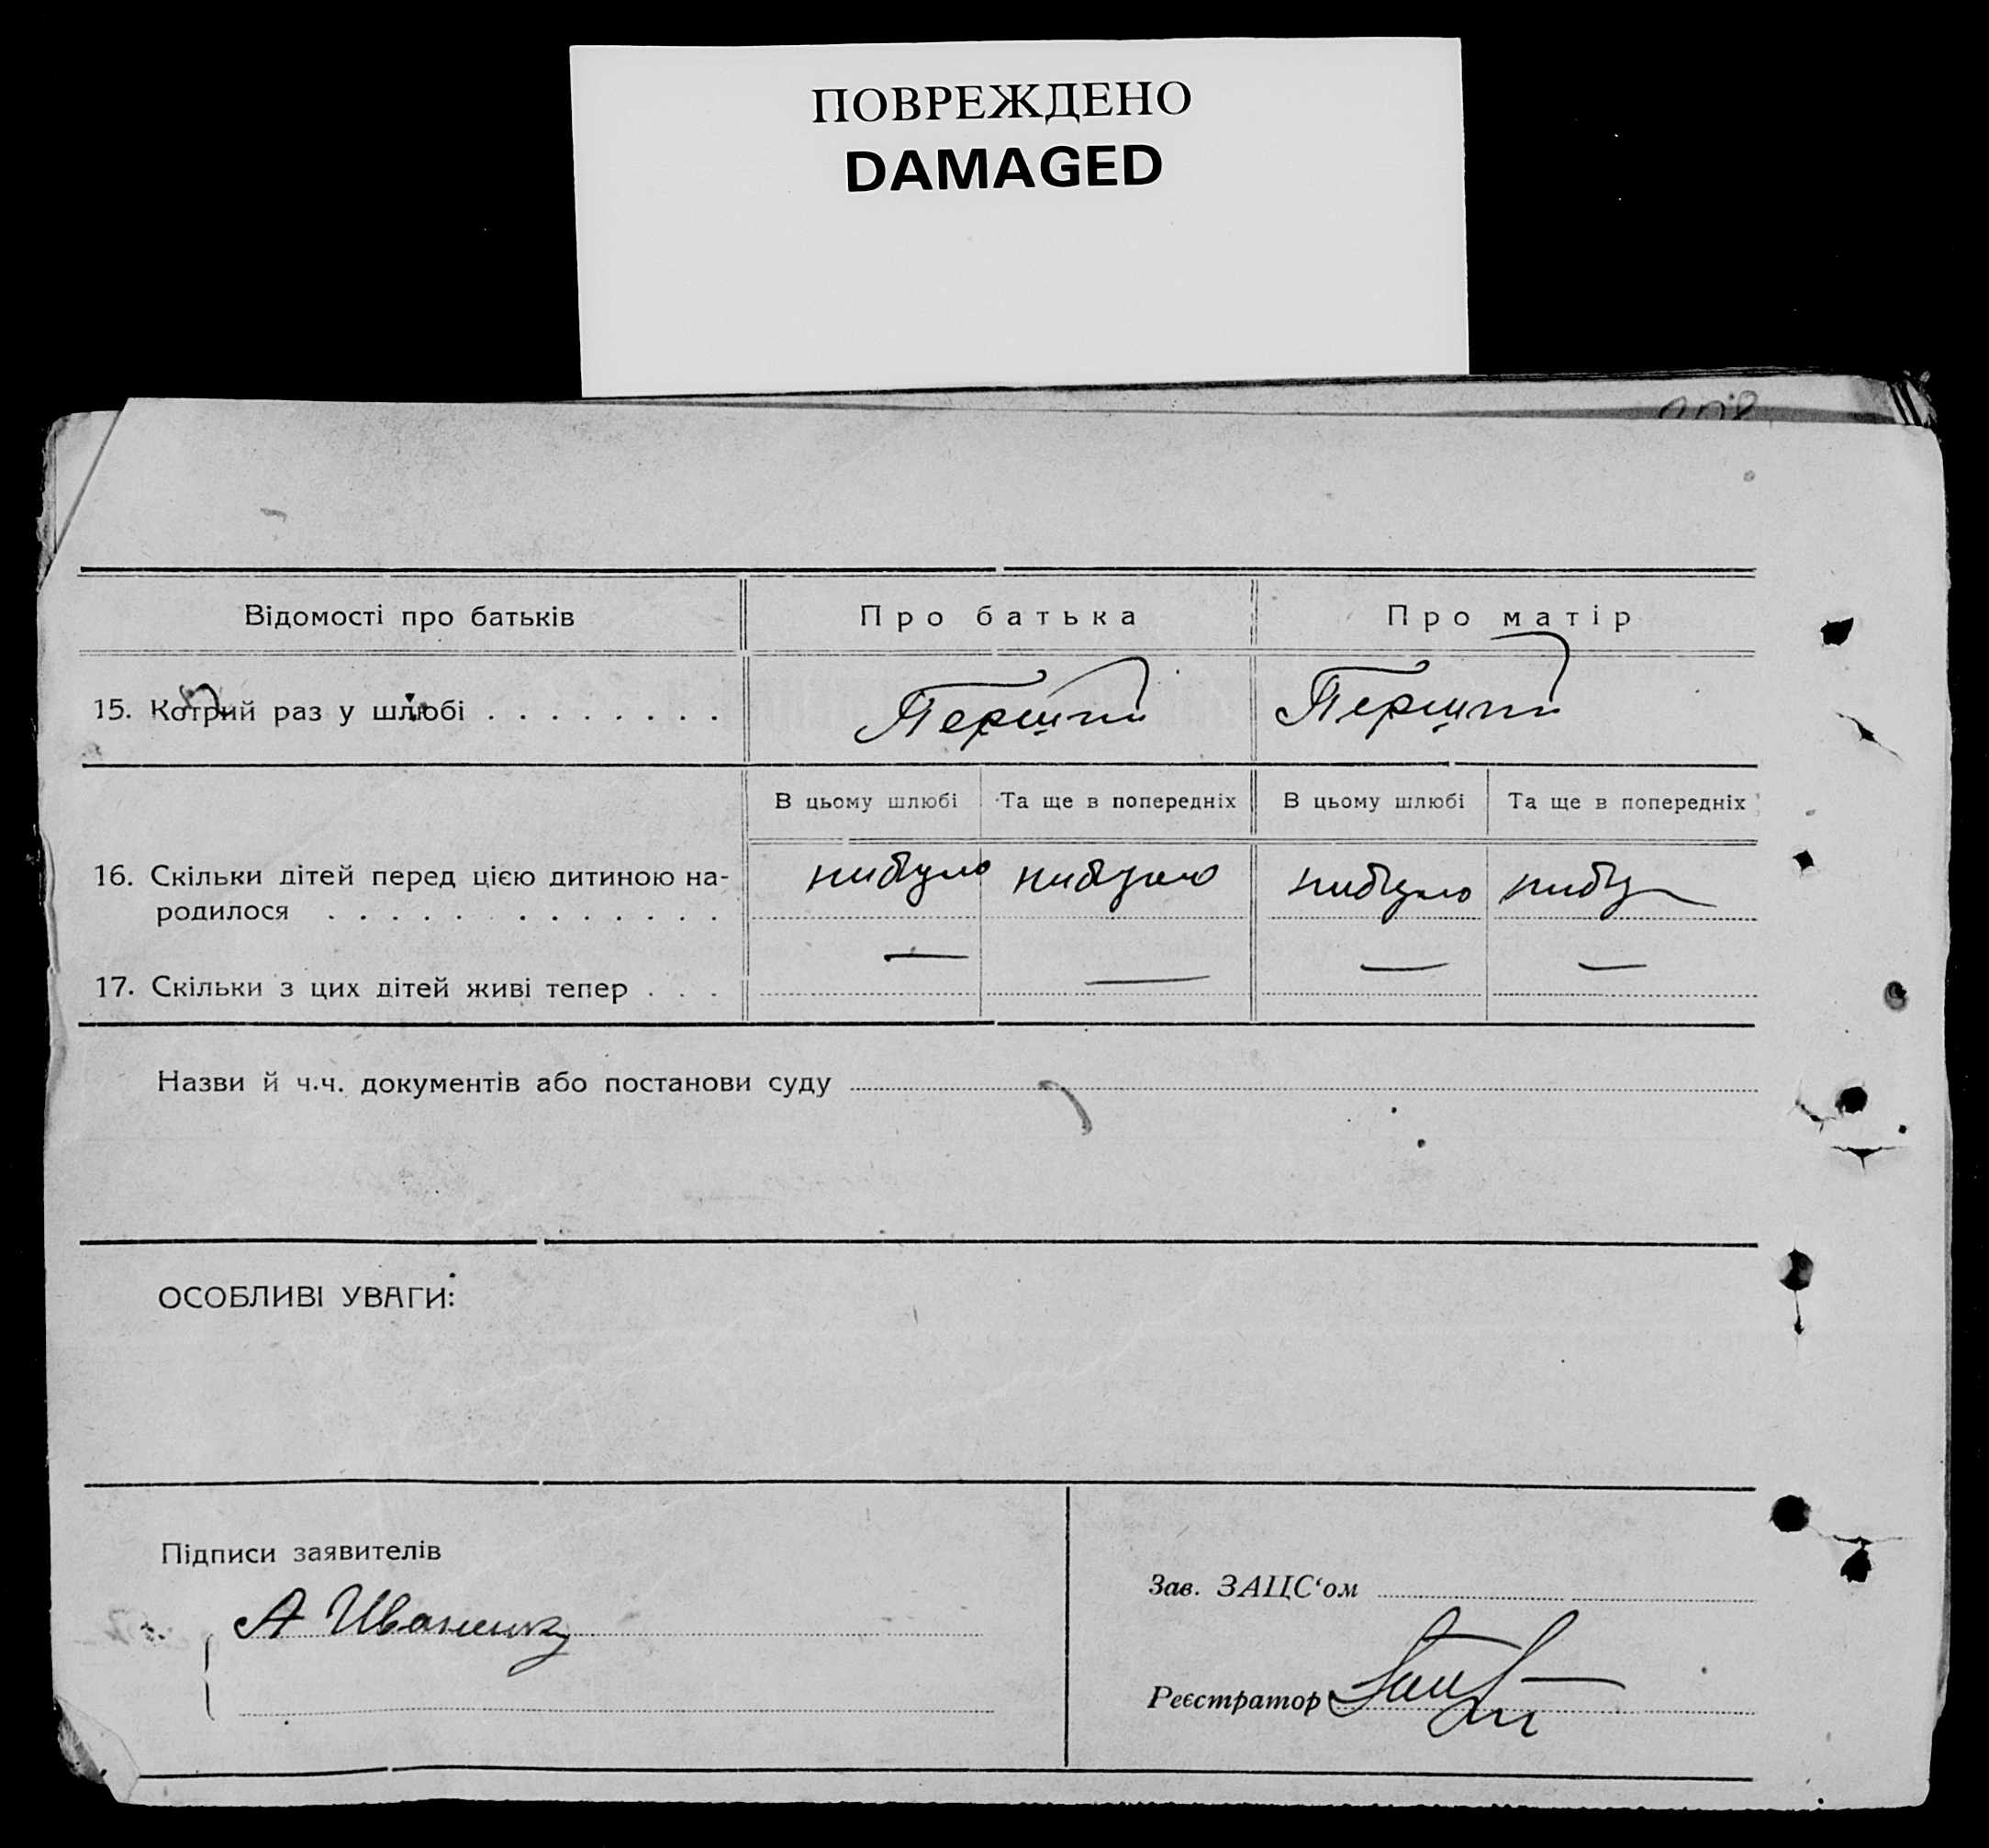 ПОВРЕЖДЕНО
DAMAGED
Відомості про батьків
Про батька
Про матір
15. Котрий раз у шлюбі . . . . . . . .
Перший
Перший
В цьому шлюбі
Та ще в попередніх
В цьому шлюбі
Та ще в попередніх
16. Скільки дітей перед цією дитиною на-
родилося . . . . . . . . . . . . .
нибуло
нибуло
нибуло
нибу
17. Скільки з цих дітей живі тепер . . .
—
—
—
—
Назви й ч.ч. документів або постанови суду
ОСОБЛИВІ УВАГИ:
Підписи заявителів
А Иваненко
Зав. ЗАЦС‘ом
Реєстратор